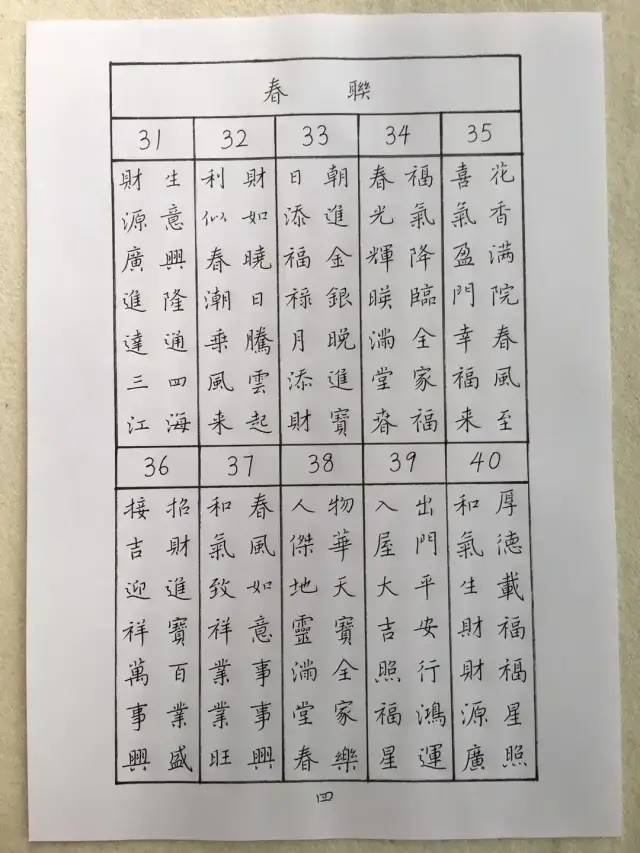 春聯
31
生意興隆通四海
財源廣進達三江
32
財如曉日騰雲起
利似春潮乗風来
33
朝進金銀晚進寶
日添福禄月添財
34
福氣降臨全家福
春光輝暎滿堂春
35
花香满院春風至
喜氣盈門幸福来
36
招財進寶百業盛
接吉迎祥萬事興
37
春風如意事事興
和氣致祥業業旺
38
物華天寶全家樂
人傑地靈滿堂春
39
出門平安行鴻運
入屋大吉照福星
40
厚德載福福星照
和氣生財財源廣
四